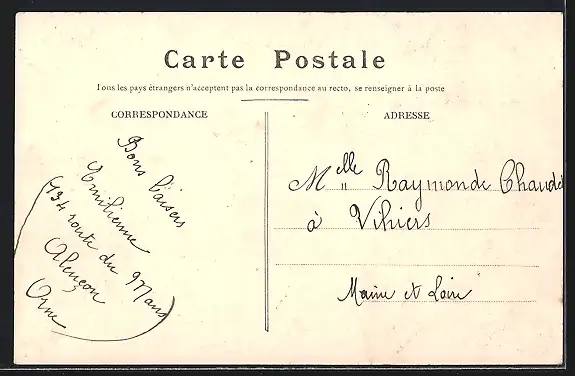 Carte Postale
Tous les pays étrangers n'acceptent pas la correspondance au recto, se renseigner à la poste
CORRESPONDANCE
ADRESSE
Bons baisers
Emilienne
134 route du Mans
Alençon
Orne
Melle Raymonde Chaudet
à Vihiers
Maine et Loire